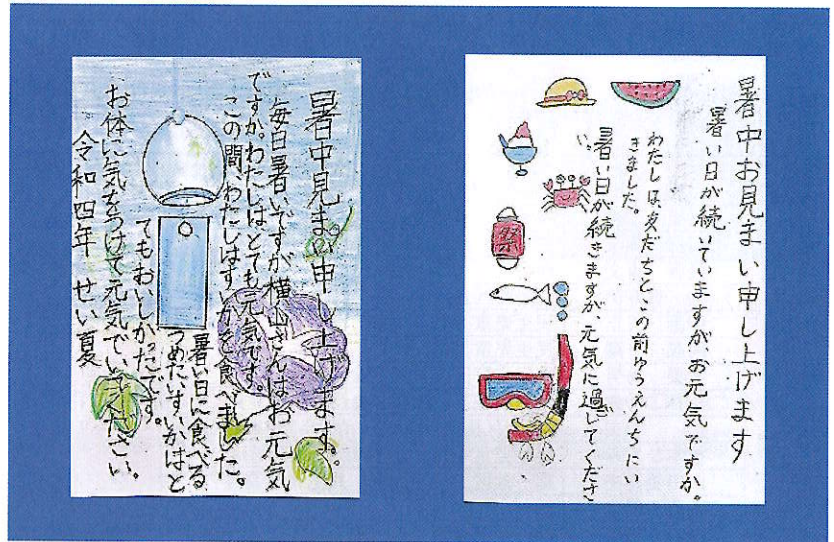 暑中お見まい申し上げます
暑い日が続いていますが、お元気ですか。
わたしは、友だちとこの前ゆうえんちにい
きました。
暑い日が続きますが、元気に過ごしてくださ
い。
祭
暑中見まい申し上げます。
毎日暑いですが横山さんはお元気
ですか。わたしはとても元気です。
この間、わたしはすいかを食べました。
暑い日に食べる
つめたいすいかはと
てもおいしかったです。
お体に気をつけて元気でいてください。
令和四年 せい夏